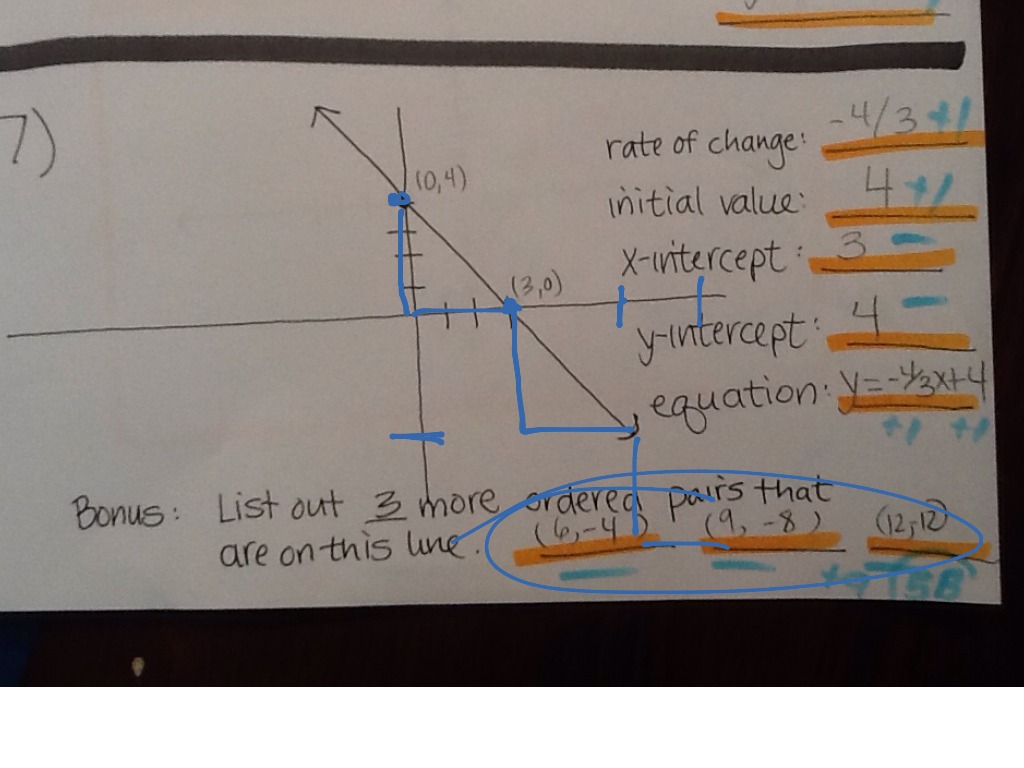 7)
(0,4)
(3,0)
rate of change: -4/3 +1
initial value: 4 +1
x-intercept: 3
y-intercept: 4
equation: y=-4/3x+4
+1 +1
Bonus: List out 3 more ordered pairs that
are on this line. (6,-4) (9,-8) (12,-12)